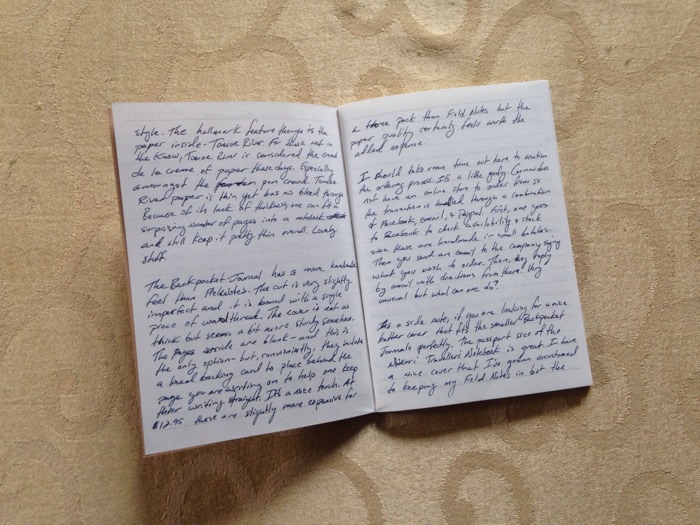 style. The hallmark feature though is the
paper inside - Tomoe River. For those not in
the know, Tomoe River is considered the creme
de la creme of paper these days. Especially
amongst the pen crowd. Tomoe
River paper is thin yet has no bleed through
Because of its lack of thickness, one can fit a
surprising number of pages into a notebook
and still keep it pretty thin overall. Lovely
stuff.
The Backpocket Journal has a more handmade
feel than Fieldnotes. The cut is very slightly
imperfect and it is bound with a single
piece of waxed thread. The cover is not as
thick but seems a bit more sturdy somehow.
The pages inside are blank - and this is
the only option - but, conveniently, they include
a lined backing card to place behind the
page you are writing on to help one keep
their writing straight. It's a nice touch. At
$12.95 these are slightly more expensive for
a three pack than Field Notes but the
paper quality certainly feels worth the
added expense.
I should take some time out here to mention
the ordering process. It's a little quirky. Curnow does
not have an online store to order from so
the transaction is handled through a combination
of Facebook, email, & Paypal. First, one goes
to Facebook to check availability & stock
since these are handmade in small batches.
Then you send an email to the company saying
what you wish to order. Then, they reply
by email with directions from there. Very
unusual but what can one do?
As a side note, if you are looking for a nice
leather cover that fits the smaller Backpocket
Journals perfectly, the passport size of the
Midori Travelers Notebook is great. I have
a nice cover that I've grown accustomed
to keeping my Field Notes in but the